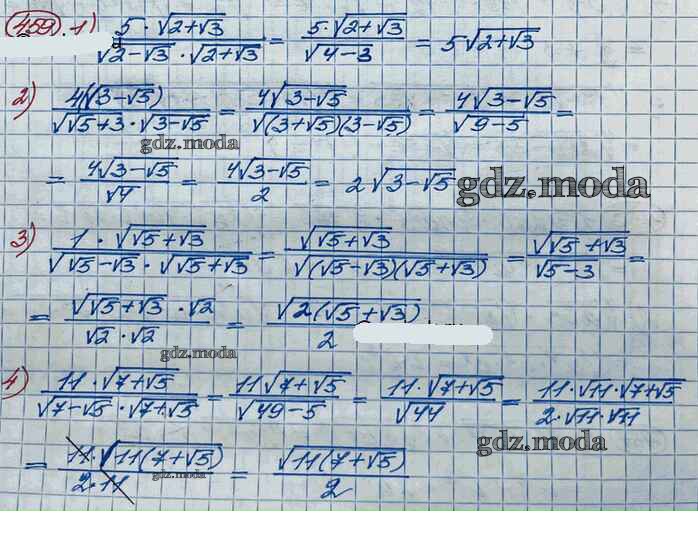 459 1) 5·√(2+√3) / √(2-√3)·√(2+√3) = 5·√(2+√3) / √(4-3) = 5√(2+√3)
2) 4(√(3-√5)) / √(√5+3)·√(3-√5) = 4√(3-√5) / √((3+√5)(3-√5)) = 4√(3-√5) / √(9-5) =
gdz.moda
= 4√(3-√5) / √4 = 4√(3-√5) / 2 = 2√(3-√5) gdz.moda
3) 1·√(√5+√3) / √(√5-√3)·√(√5+√3) = √(√5+√3) / √((√5-√3)(√5+√3)) = √(√5+√3) / √(5-3) =
= √(√5+√3)·√2 / √2·√2 = √(2(√5+√3)) / 2
gdz.moda
4) 11·√(7+√5) / √(7-√5)·√(7+√5) = 11√(7+√5) / √(49-5) = 11·√(7+√5) / √44 = 11·√11·√(7+√5) / 2·√11·√11
gdz.moda
= 11·√(11(7+√5)) / 2·11 = √(11(7+√5)) / 2
gdz.moda